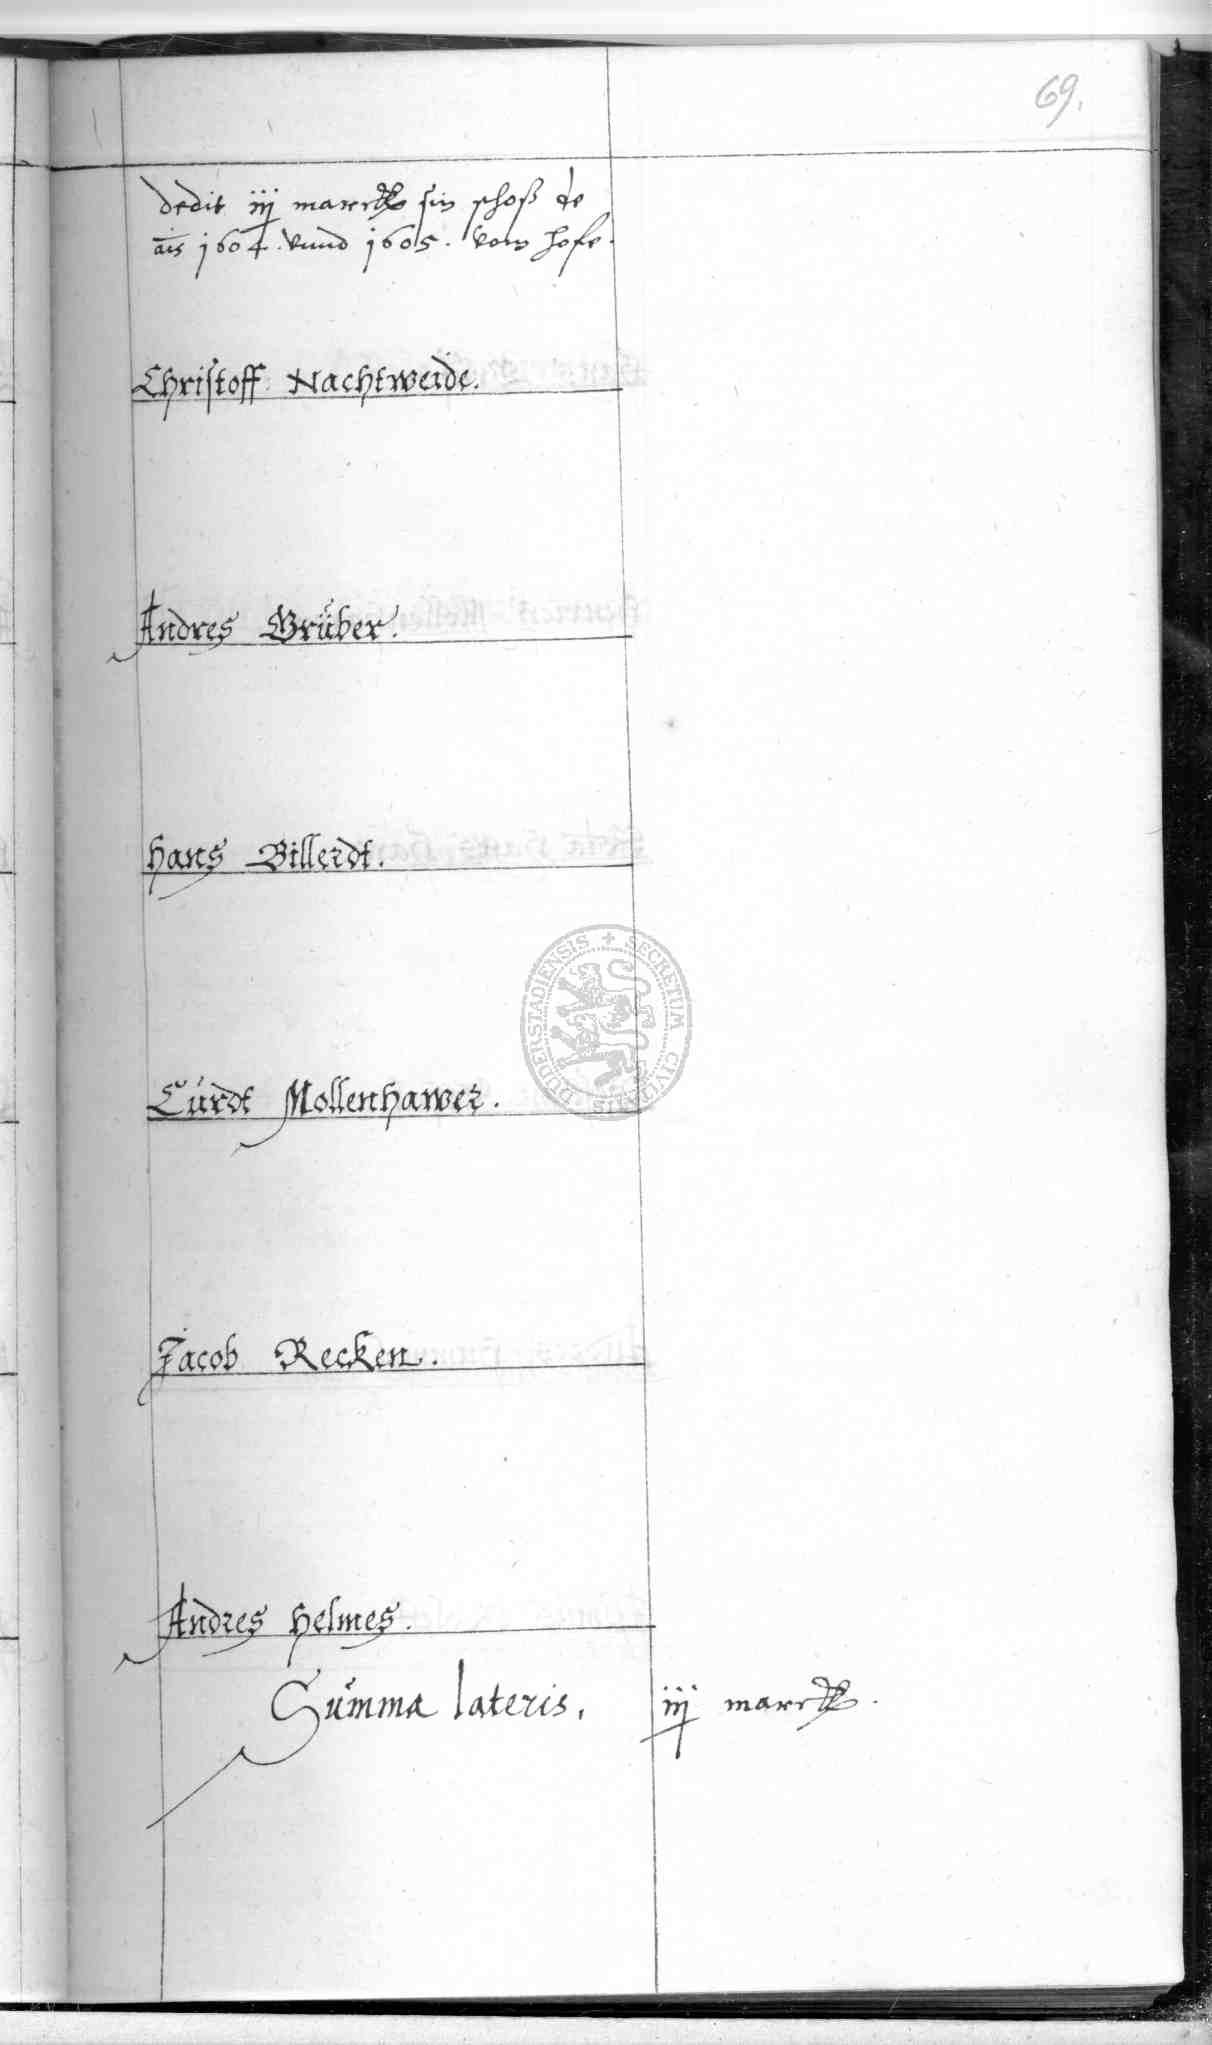 69.
dedit iij marck sin schoß de
ais 1604. vnnd 1605. vom hofe.
Christoff Nachtweide.
Andres Grüber.
Hans Billerdt.
Curdt Mollenhawer.
DUDERSTADIENSIS + SECRETUM CIVITATIS
Jacob Recken.
Andres Helmes.
Summa lateris. iij marck.